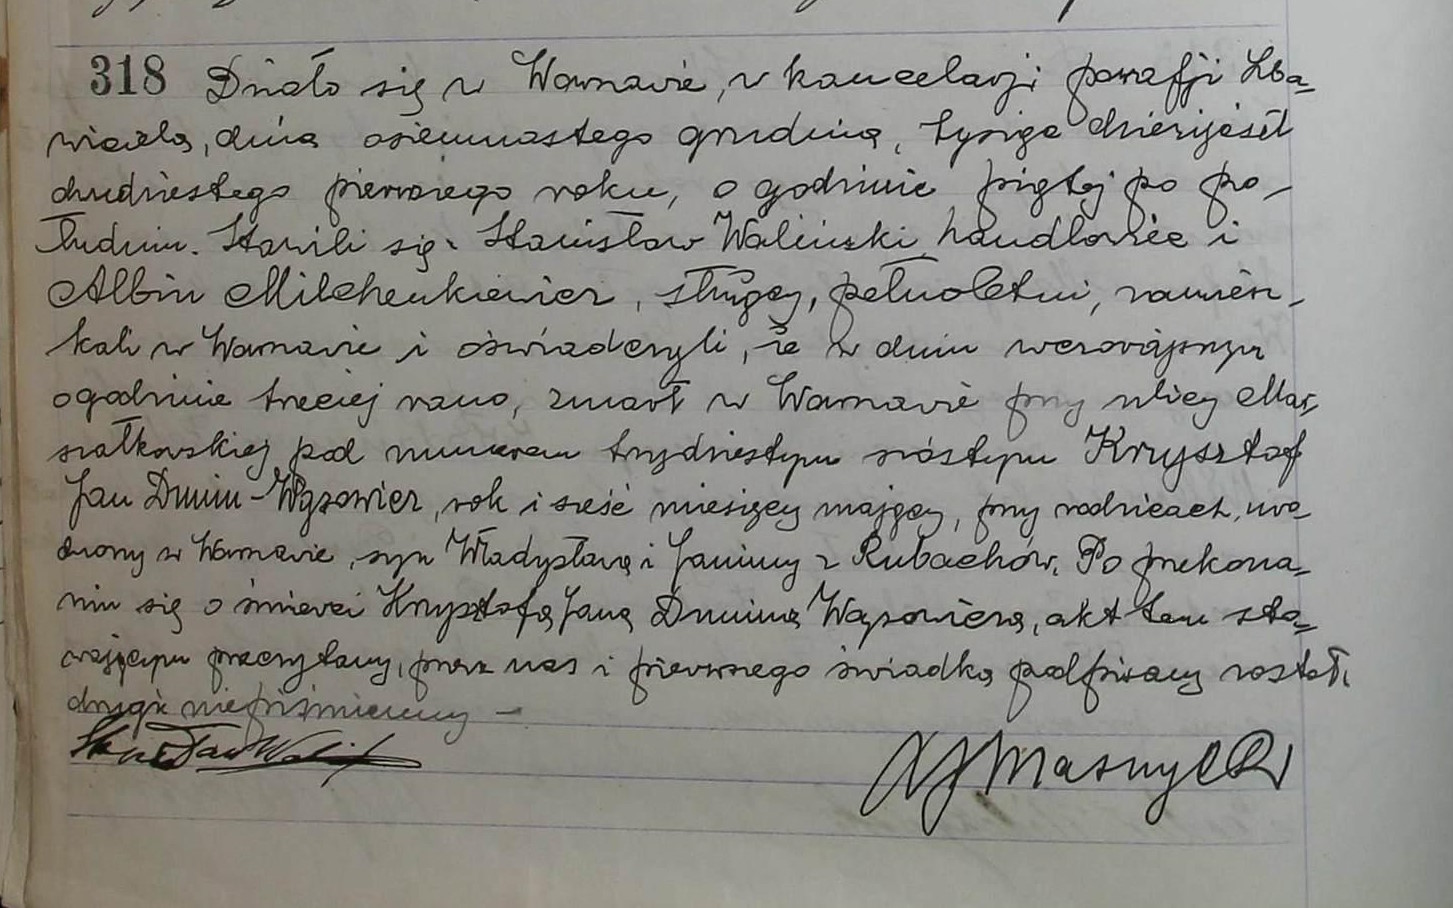 318 Działo się w Warszawie, w kancelarji parafji Zba=
wiciela, dnia osiemnastego grudnia, tysiąc dziewięćset
dwudziestego pierwszego roku, o godzinie piątej po po-
łudniu. Stawili się: Stanisław Waliński, handlowiec i
Albin Milchenkiewicz, służący, pełnoletni, zamiesz-
kali w Warszawie i oświadczyli, że w dniu wczorajszym
o godzinie trzeciej rano, zmarł w Warszawie przy ulicy Mar-
szałkowskiej pod numerem trzydziestym szóstym Krysztof
Jan Dunin-Wąsowicz, rok i sześć miesięcy mający, przy rodzicach, uro-
dzony w Warszawie, syn Władysława i Janiny z Rubachów. Po przekona-
niu się o śmierci Krysztofa Jana Dunina Wąsowicza, akt ten sta=
wającym przeczytany, przez nas i pierwszego świadka podpisany został,
drugi niepiśmienny —
Stanisław Waliński